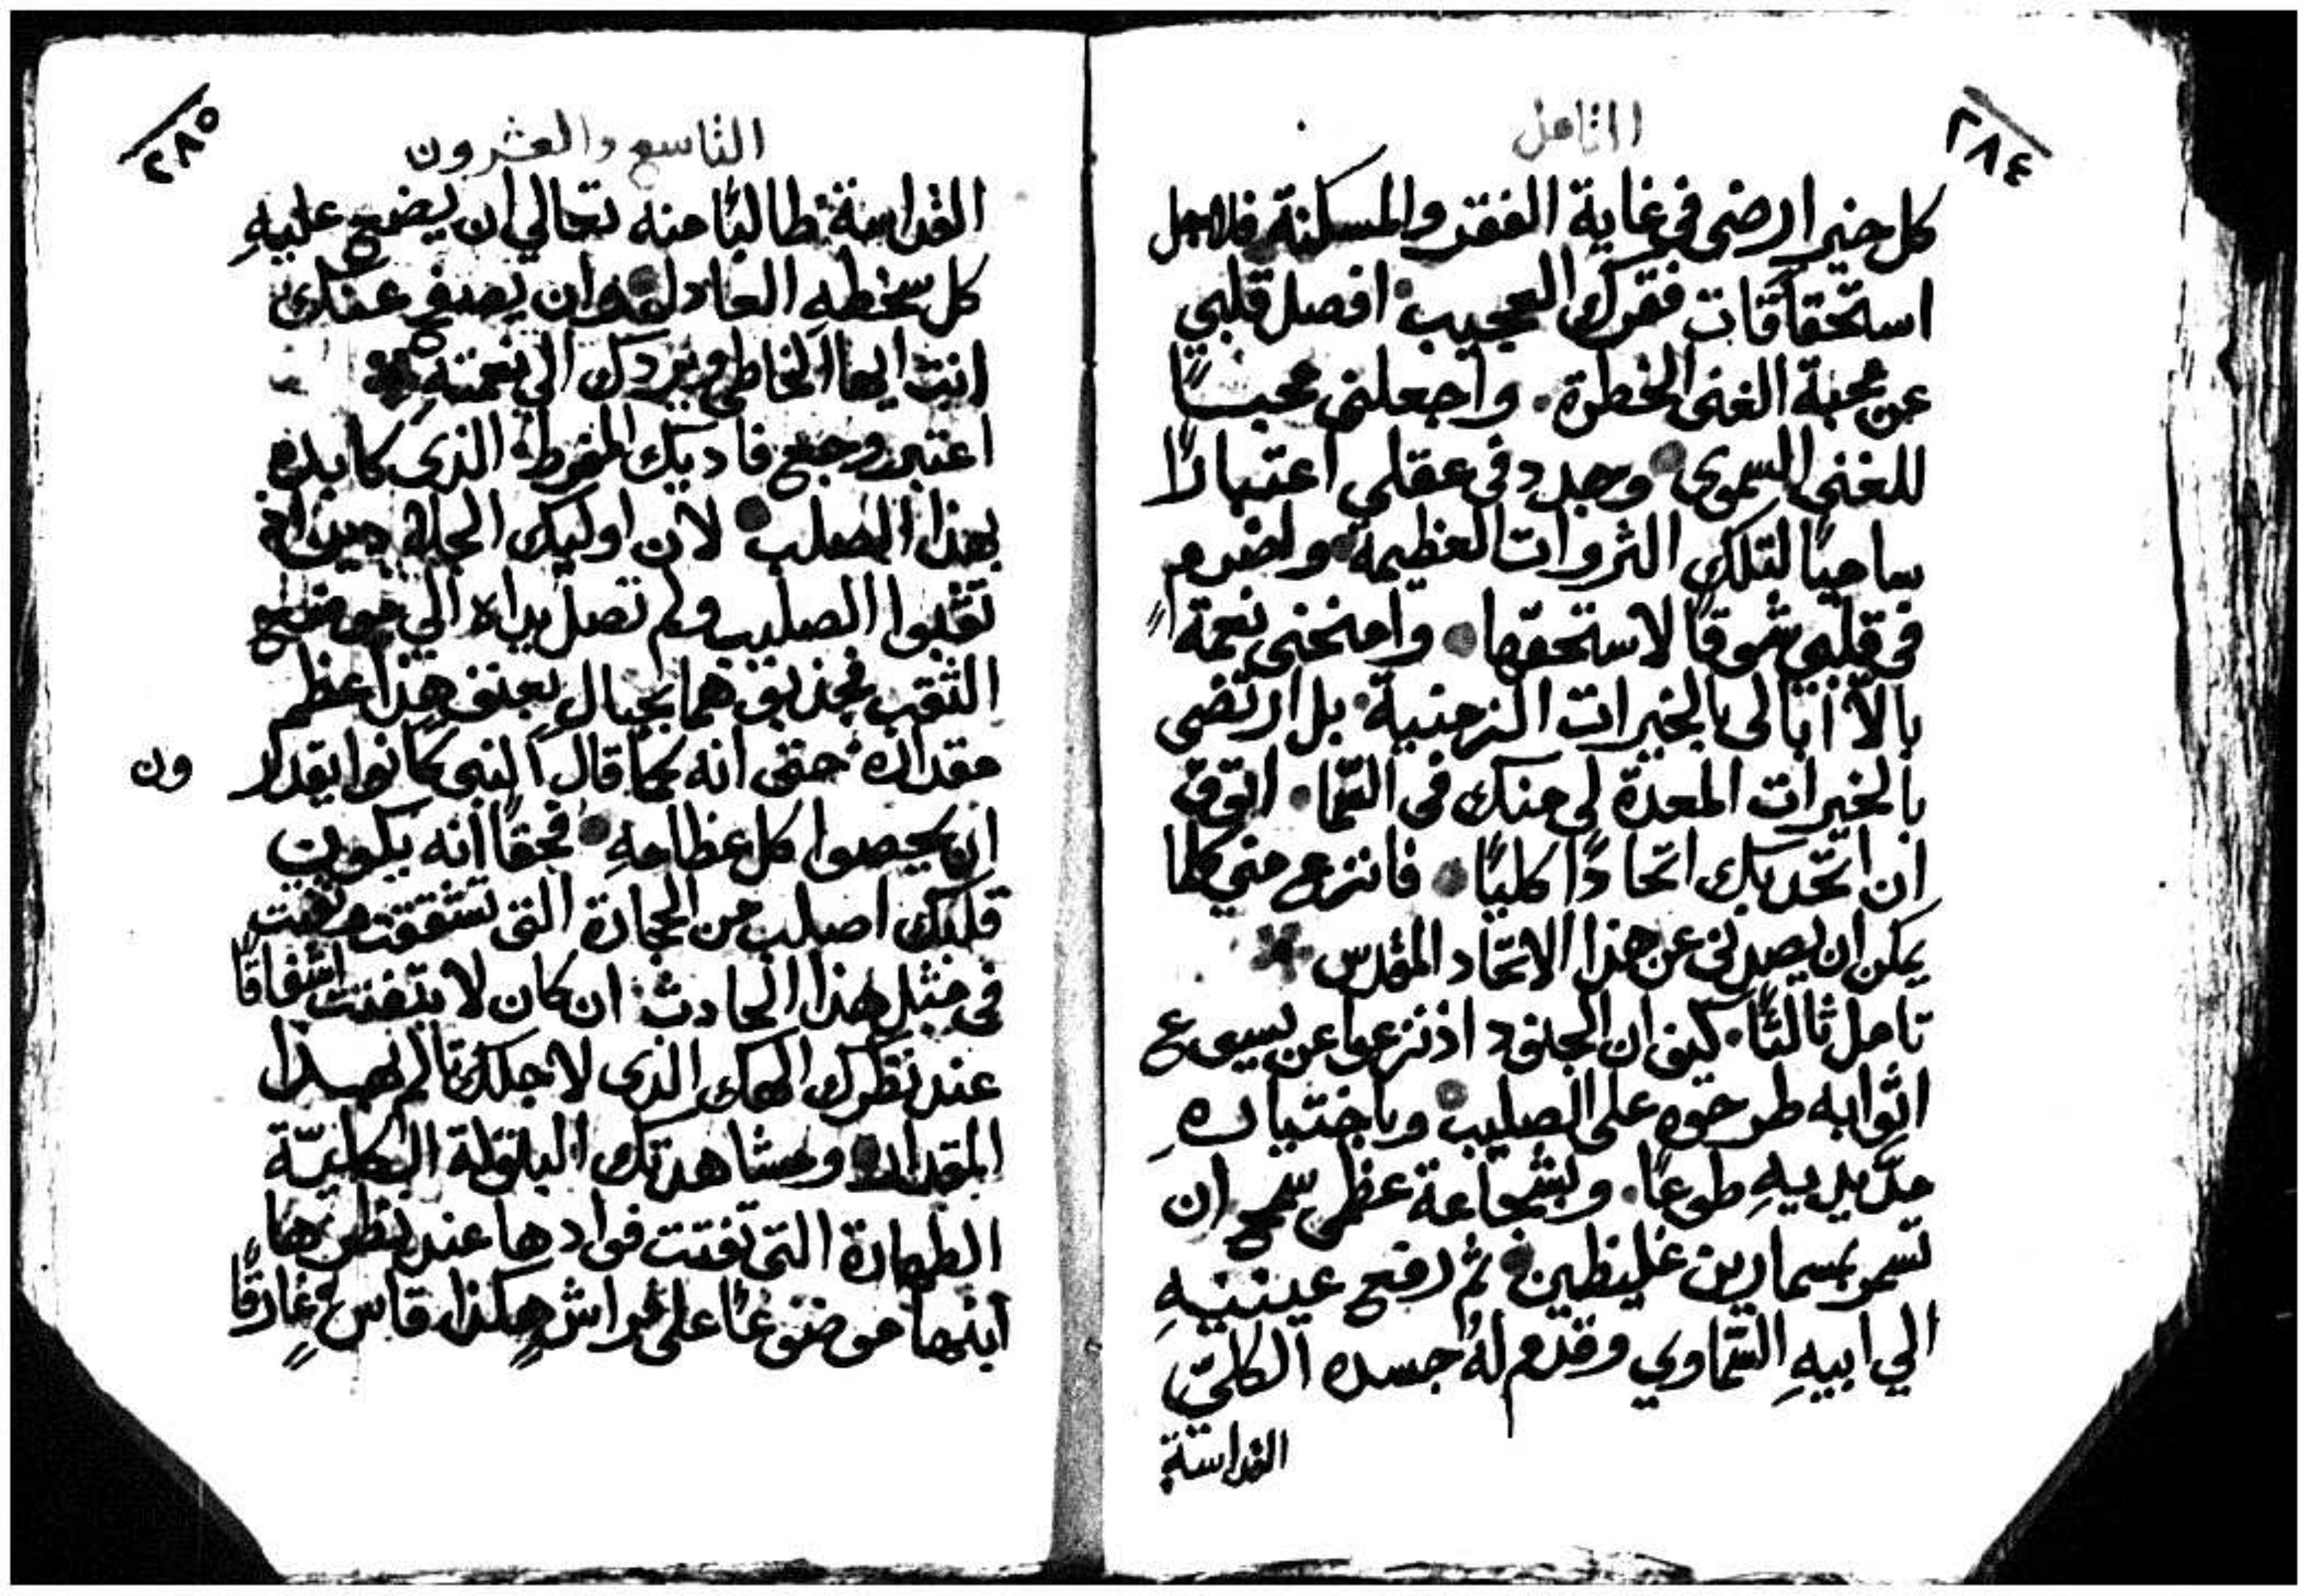 ٢٨٤
التامل
كل خير ارضى في غاية الفقر والمسكنة فلاجل
استحقاقات فقرك العجيب افصل قلبي
عن محبة الغنى الخطرة. واجعلنى محبــاً
للغنى السموى وجدد في عقلي اعتبارًا
ساميًا لتلك الثروات العظيمه واضرم
في قلبي شوقًا لاستحقها وامنحنى نعمةً
بالّا ابالى بالخيرات الزمنية بل ارتضى
بالخيرات المعدّة لي منك في السّما. اتوق
ان اتّحد بك اتحادًا كليًا فانزع مني كلما
يمكن ان يصدني عن هذا الاتّحاد المقدس
تامل ثالثًا. كيف ان الجنود اذ نزعوا عن يسوع
اثوابه طرحوه على الصليب وباختياره
مدّ يديهِ طوعًا. وبشجاعة عظمى سمح ان
تسمر بمسمارين غليظين ثم رفع عينيهِ
الي ابيهِ السّماوي وقدم لهُ جسده الكليّ
القداسة
٢٨٥
التاسع والعشرون
القداسة طالبًا منه تعالي ان يضع عليهِ
كل سخطهِ العادل وان يصفح عنك
انت ايها الخاطى ويردك الي نعمتهِ
اعتبر وجع فاديك المفرط الذى كابده
بهذا الصلب لان اوليك الجلاد حين اذ
ثقبوا الصليب ولم تصل يداه الي موضع
الثقب فجذبوهما بحبالٍ بعنف هذا عظم
مقداره حتى انه كما قال النبى كانوا يقدر
ون
ان يحصوا كل عظامهِ فحقًا انه يكون
قلبك اصلب من الحجارة التى تشققت وتفتت
في مثل هذا الحادث ان كان لا يتفتت اشفاقًا
عند نظرك الهك الذى لاجلك تالم بهــذا
المقدار وبمشاهدتك البتولة الكليّة
الطهارة التى تفتت فوادها عند نظرها
ابنها موضوعًا على فراش هكذا قاسٍ وغارقًا